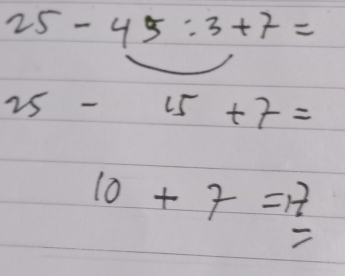 25 - 45 : 3 + 7 =
25 - 15 + 7 =
10 + 7 = 17